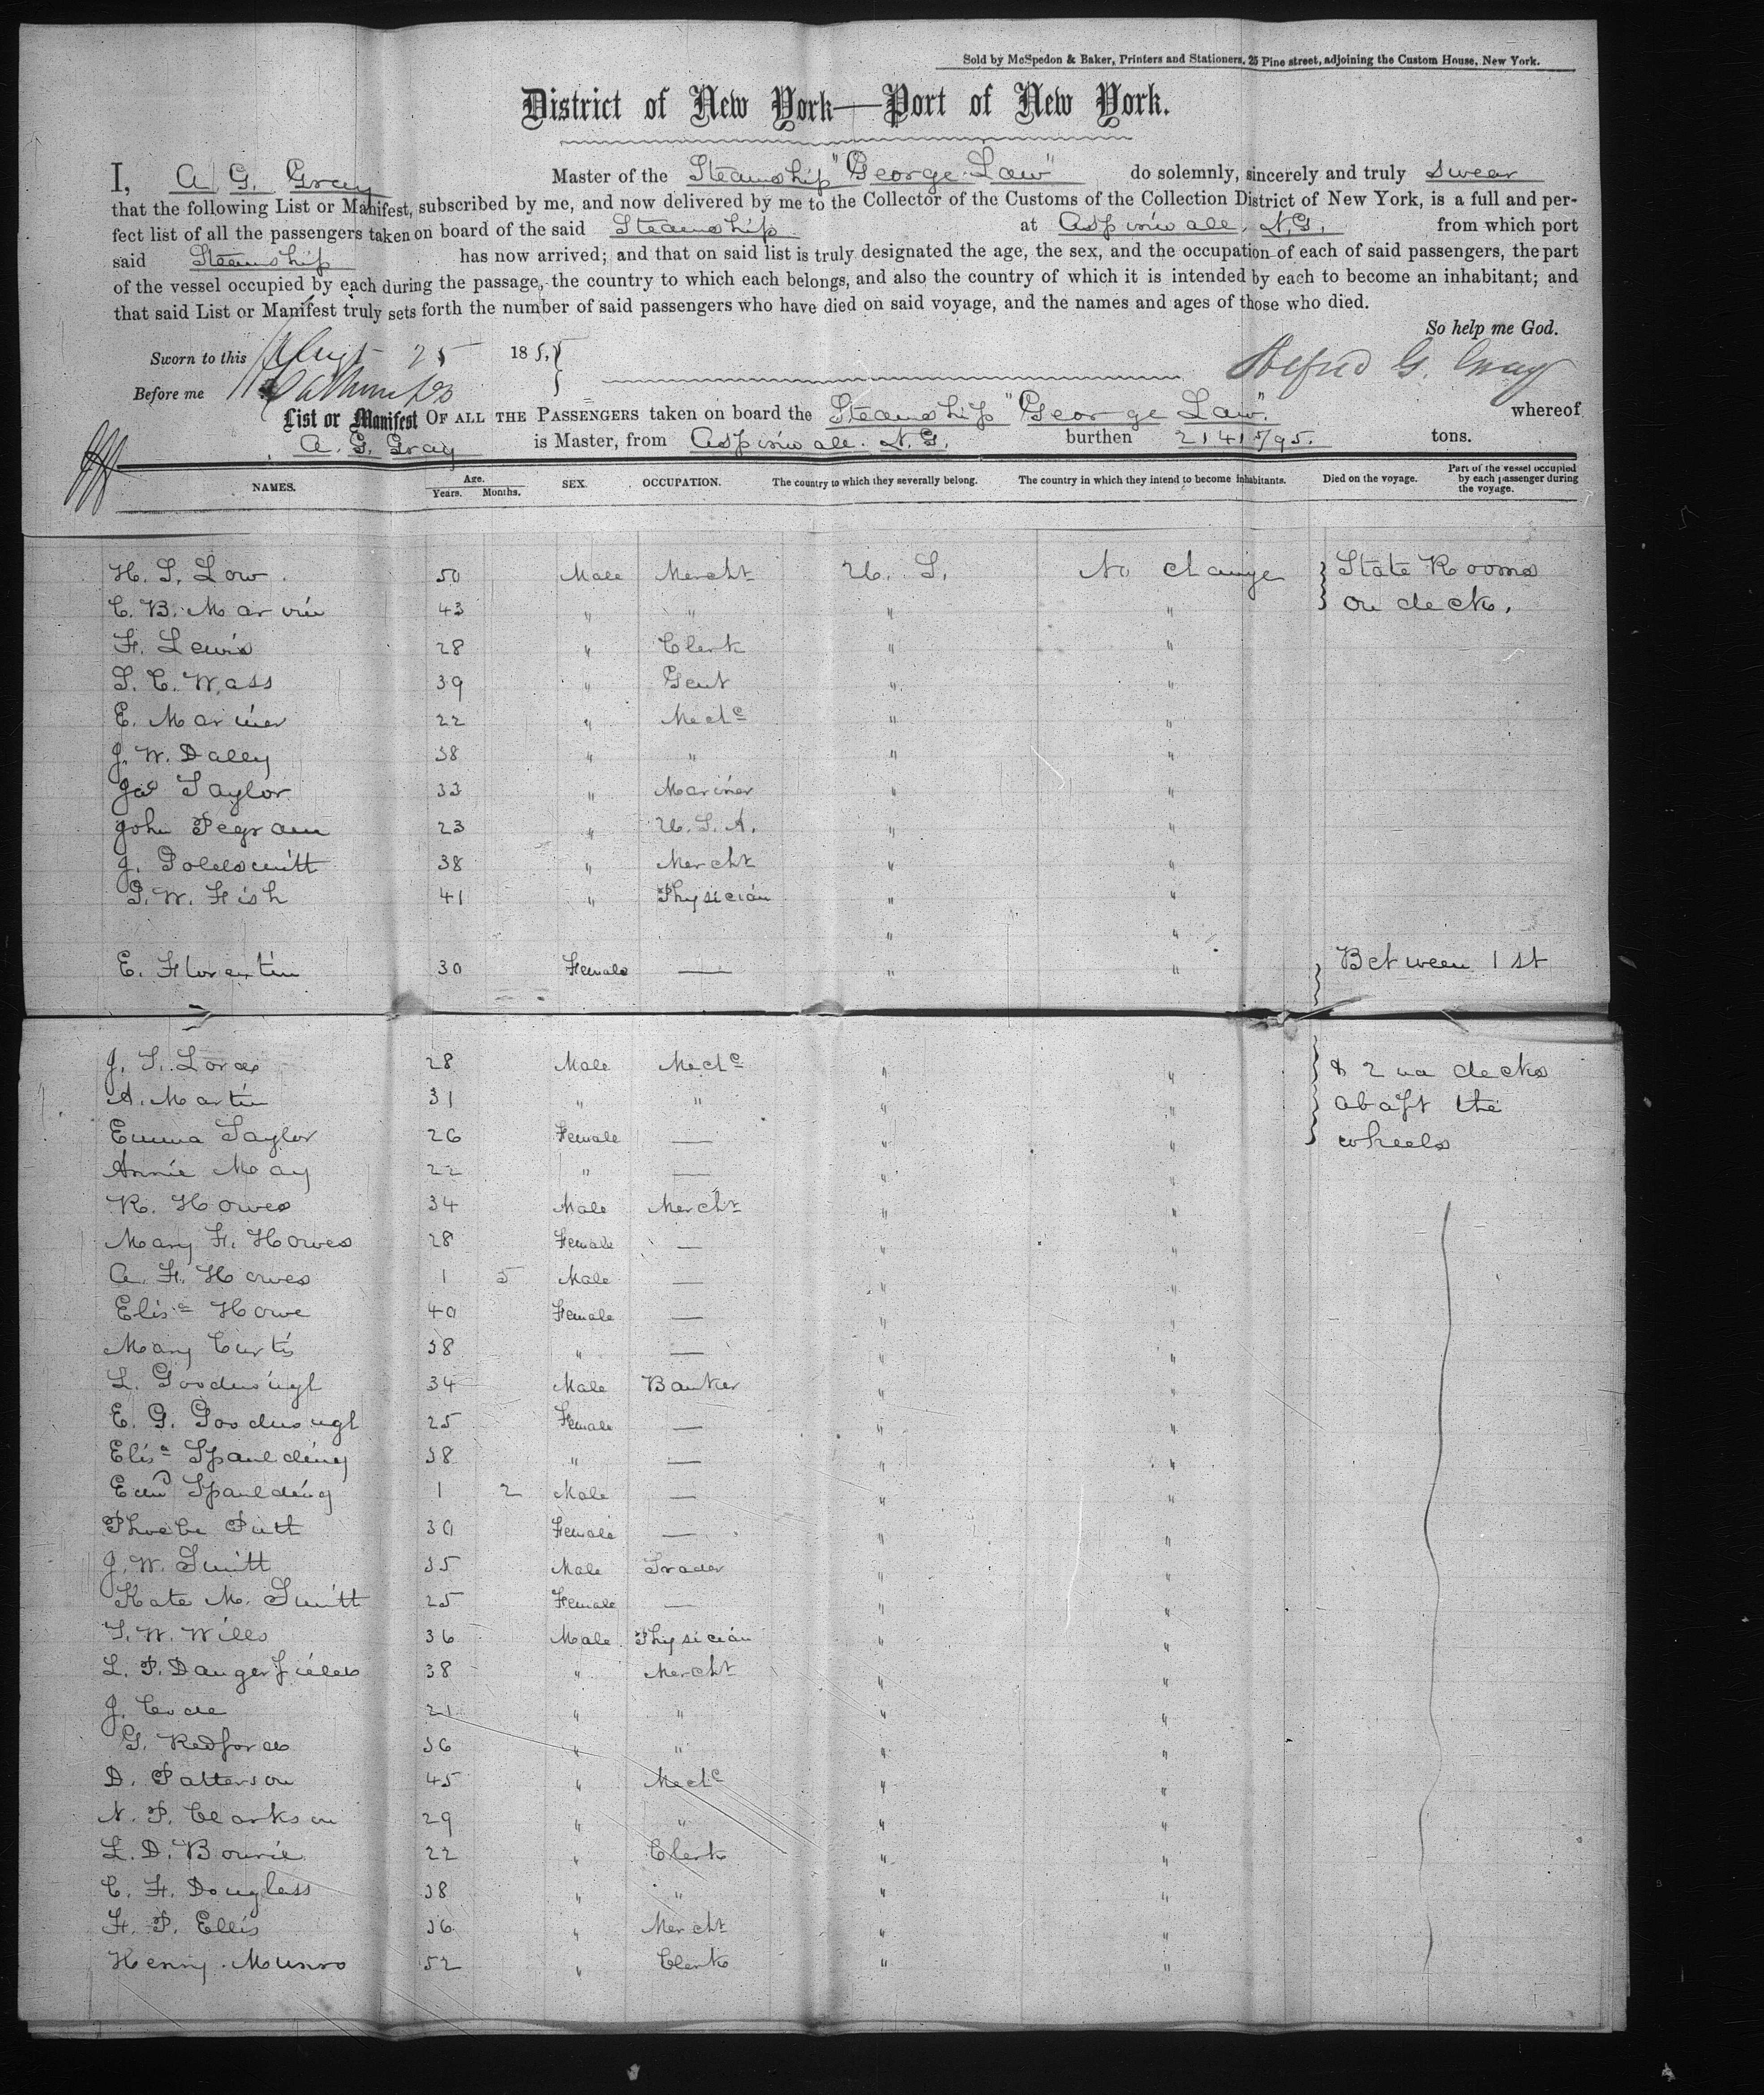 Sold by McSpedon & Baker, Printers and Stationers, 25 Pine street, adjoining the Custom House, New York.
District of New York—Port of New York.
I, A. G. Gray Master of the Steamship "George Law" do solemnly, sincerely and truly swear
that the following List or Manifest, subscribed by me, and now delivered by me to the Collector of the Customs of the Collection District of New York, is a full and per-
fect list of all the passengers taken on board of the said Steamship at Aspinwall, N.G. from which port
said Steamship has now arrived; and that on said list is truly designated the age, the sex, and the occupation of each of said passengers, the part
of the vessel occupied by each during the passage, the country to which each belongs, and also the country of which it is intended by each to become an inhabitant; and
that said List or Manifest truly sets forth the number of said passengers who have died on said voyage, and the names and ages of those who died.
So help me God.
Sworn to this Augt 25 1855
Alfred G. Gray
Before me
List or Manifest OF ALL THE PASSENGERS taken on board the Steamship "George Law" whereof
A. G. Gray is Master, from Aspinwall. N.G. burthen 2141 5/95. tons.
NAMES. Age. Years. Months. SEX. OCCUPATION. The country to which they severally belong. The country in which they intend to become inhabitants. Died on the voyage. Part of the vessel occupied by each passenger during the voyage.
H. S. Low 50 Male Mercht U. S. No change State Rooms
C. B. Marvin 43 " " " " on deck.
F. Lewis 28 " Clerk " "
S. C. Wass 39 " Gent " "
E. Mariner 22 " Mechc " "
J. W. Dally 38 " " " "
Jas Taylor 33 " Mariner " "
John Pegram 23 " U. S. A. " "
J. Goldsmitt 38 " Mercht " "
G. W. Fish 41 " Physician " "
" "
E. Florentin 30 Female — " " Between 1st
J. S. Lord 28 Male Mechc " " & 2nd decks
A. Martin 31 " " " " abaft the
Emma Taylor 26 Female — " " wheels
Annie May 22 " — " "
R. Howes 34 Male Mercht " "
Mary F. Howes 28 Female — " "
A. F. Howes 1 5 Male — " "
Elisa Howe 40 Female — " "
Mary Curtis 38 " — " "
L. Goodnough 34 Male Banker " "
E. G. Goodnough 25 Female — " "
Elisa Spaulding 38 " — " "
Edwd Spaulding 1 2 Male — " "
Phoebe Pitt 30 Female — " "
J. W. Smitt 35 Male Trader " "
Kate M. Smitt 25 Female — " "
T. W. Wills 36 Male Physician " "
L. P. Dangerfield 38 " Mercht " "
J. Code 21 " " " "
G. Redford 36 " " " "
D. Patterson 45 " Mechc " "
N. P. Clarkson 29 " " " "
L. D. Bowie 22 " Clerk " "
C. F. Douglass 38 " " " "
F. P. Ellis 36 " Mercht " "
Henry Munro 52 " Clerk " "